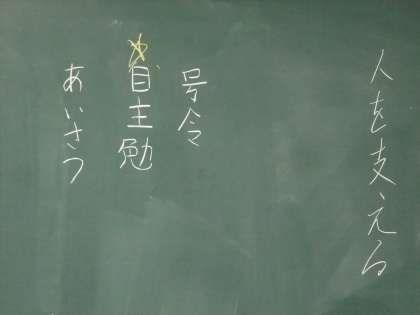 人を支える
号令
自主勉
あいさつ